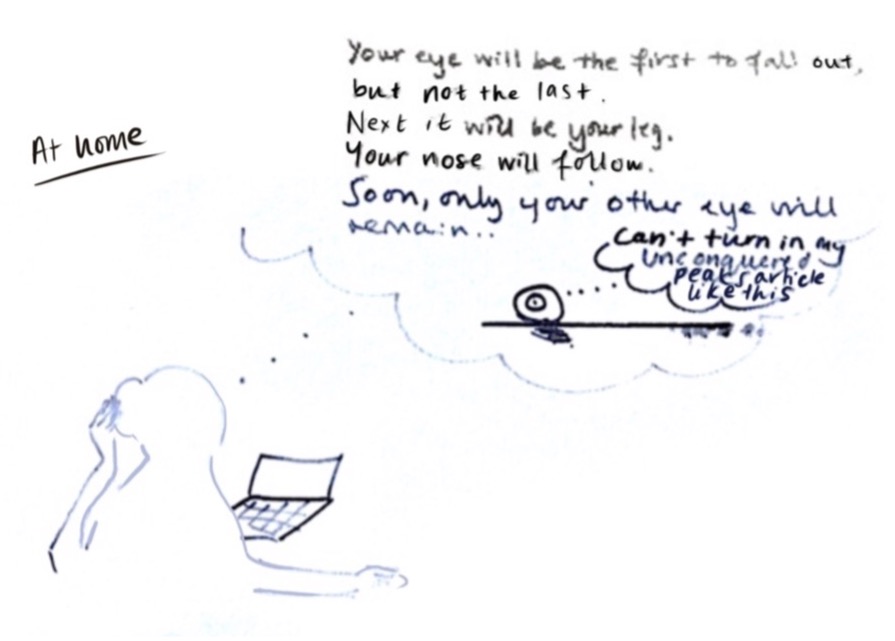 At home
Your eye will be the first to fall out,
but not the last.
Next it will be your leg.
Your nose will follow.
Soon, only your other eye will
remain..
Can't turn in my
unconquered
peaks article
like this